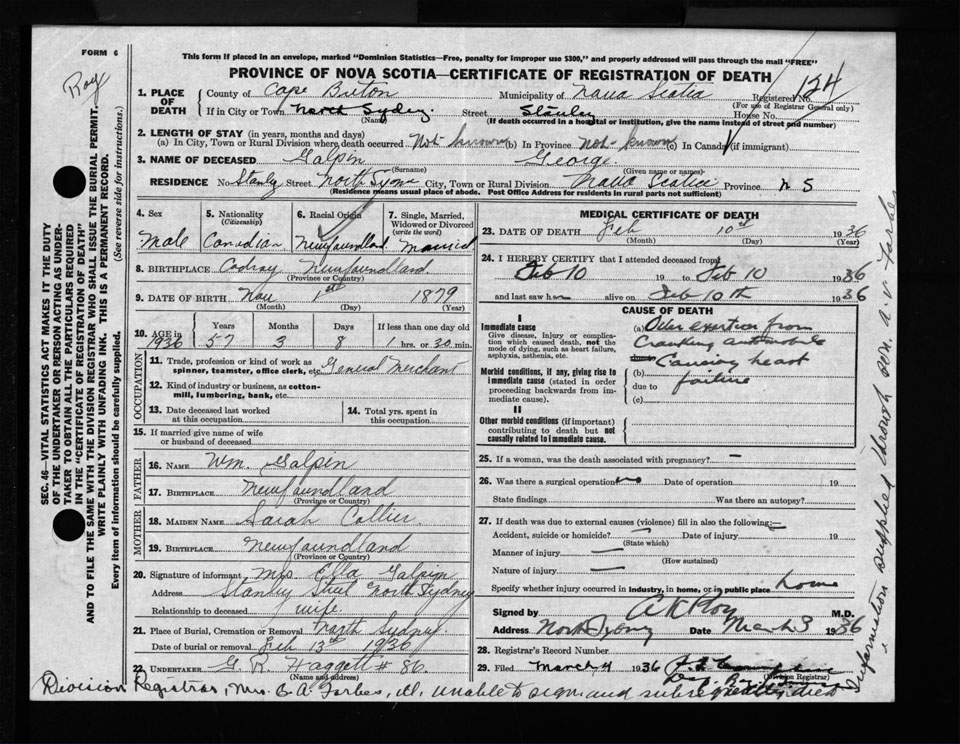 FORM 6
Roy
This form if placed in an envelope, marked "Dominion Statistics—Free, penalty for improper use $300," and properly addressed will pass through the mail "FREE"
PROVINCE OF NOVA SCOTIA—CERTIFICATE OF REGISTRATION OF DEATH
124
1. PLACE OF DEATH
County of Cape Breton Municipality of Nova Scotia Registered No.
(For use of Registrar General only)
If in City or Town North Sydney Street Stanley House No.
(Name) (If death occurred in a hospital or institution, give the name instead of street and number)
2. LENGTH OF STAY (in years, months and days)
(a) In City, Town or Rural Division where death occurred Not known (b) In Province not known (c) In Canada (if immigrant)
3. NAME OF DECEASED Galpin George
(Surname) (Given name or names)
RESIDENCE No. Stanley Street North Sydney City, Town or Rural Division Nova Scotia Province N S
(Residence means usual place of abode. Post Office Address for residents in rural parts not sufficient)
4. Sex
Male
5. Nationality (Citizenship)
Canadian
6. Racial Origin
Newfoundland
7. Single, Married, Widowed or Divorced (write the word)
Married
8. BIRTHPLACE Codroy Newfoundland
(Province or Country)
9. DATE OF BIRTH Nov 1st 1879
(Month) (Day) (Year)
10. AGE in Years Months Days If less than one day old
1936 57 3 8 1 hrs. or 30 min.
OCCUPATION
11. Trade, profession or kind of work as spinner, teamster, office clerk, etc. General Merchant
12. Kind of industry or business, as cotton-mill, lumbering, bank, etc.
13. Date deceased last worked at this occupation
14. Total yrs. spent in this occupation
15. If married give name of wife or husband of deceased
FATHER
16. NAME Wm. Galpin
17. BIRTHPLACE Newfoundland
(Province or Country)
MOTHER
18. MAIDEN NAME Sarah Collier.
19. BIRTHPLACE Newfoundland
(Province or Country)
20. Signature of informant Mrs Ella Galpin
Address Stanley Street North Sydney
Relationship to deceased wife.
21. Place of Burial, Cremation or Removal North Sydney
Date of burial or removal Feb 13th 1936
22. UNDERTAKER G. R. Haggett # 86.
(Name and address)
MEDICAL CERTIFICATE OF DEATH
23. DATE OF DEATH Feb 10th 1936
(Month) (Day) (Year)
24. I HEREBY CERTIFY that I attended deceased from
Feb 10 19 to Feb 10 1936
and last saw h alive on Feb 10th 1936
CAUSE OF DEATH
I
Immediate cause
Give disease, injury or complication which caused death, not the mode of dying, such as heart failure, asphyxia, asthenia, etc.
(a) Over exertion from
Cranking automobile
Morbid conditions, if any, giving rise to immediate cause (stated in order proceeding backwards from immediate cause).
(b) Causing heart
due to failure
(c)
II
Other morbid conditions (if important) contributing to death but not causally related to immediate cause.
25. If a woman, was the death associated with pregnancy? —
26. Was there a surgical operation no Date of operation 19
State findings Was there an autopsy?
27. If death was due to external causes (violence) fill in also the following:—
Accident, suicide or homicide? — Date of injury 19
(State which)
Manner of injury —
(How sustained)
Nature of injury —
Specify whether injury occurred in industry, in home, or in public place home
Signed by A K Roy M.D.
Address North Sydney Date March 3 1936
28. Registrar's Record Number
29. Filed March 4 1936
(Division Registrar)
Division Registrar, Mrs. E. A. Forbes, ill, unable to sign and subsequently died
Information supplied through son. A. V. Forbes
SEC. 46—VITAL STATISTICS ACT MAKES IT THE DUTY
OF THE UNDERTAKER OR PERSON ACTING AS UNDER-
TAKER TO OBTAIN ALL THE PARTICULARS REQUIRED
IN THE "CERTIFICATE OF REGISTRATION OF DEATH"
AND TO FILE THE SAME WITH THE DIVISION REGISTRAR WHO SHALL ISSUE THE BURIAL PERMIT.
WRITE PLAINLY WITH UNFADING INK. THIS IS A PERMANENT RECORD.
Every item of information should be carefully supplied. (See reverse side for instructions.)